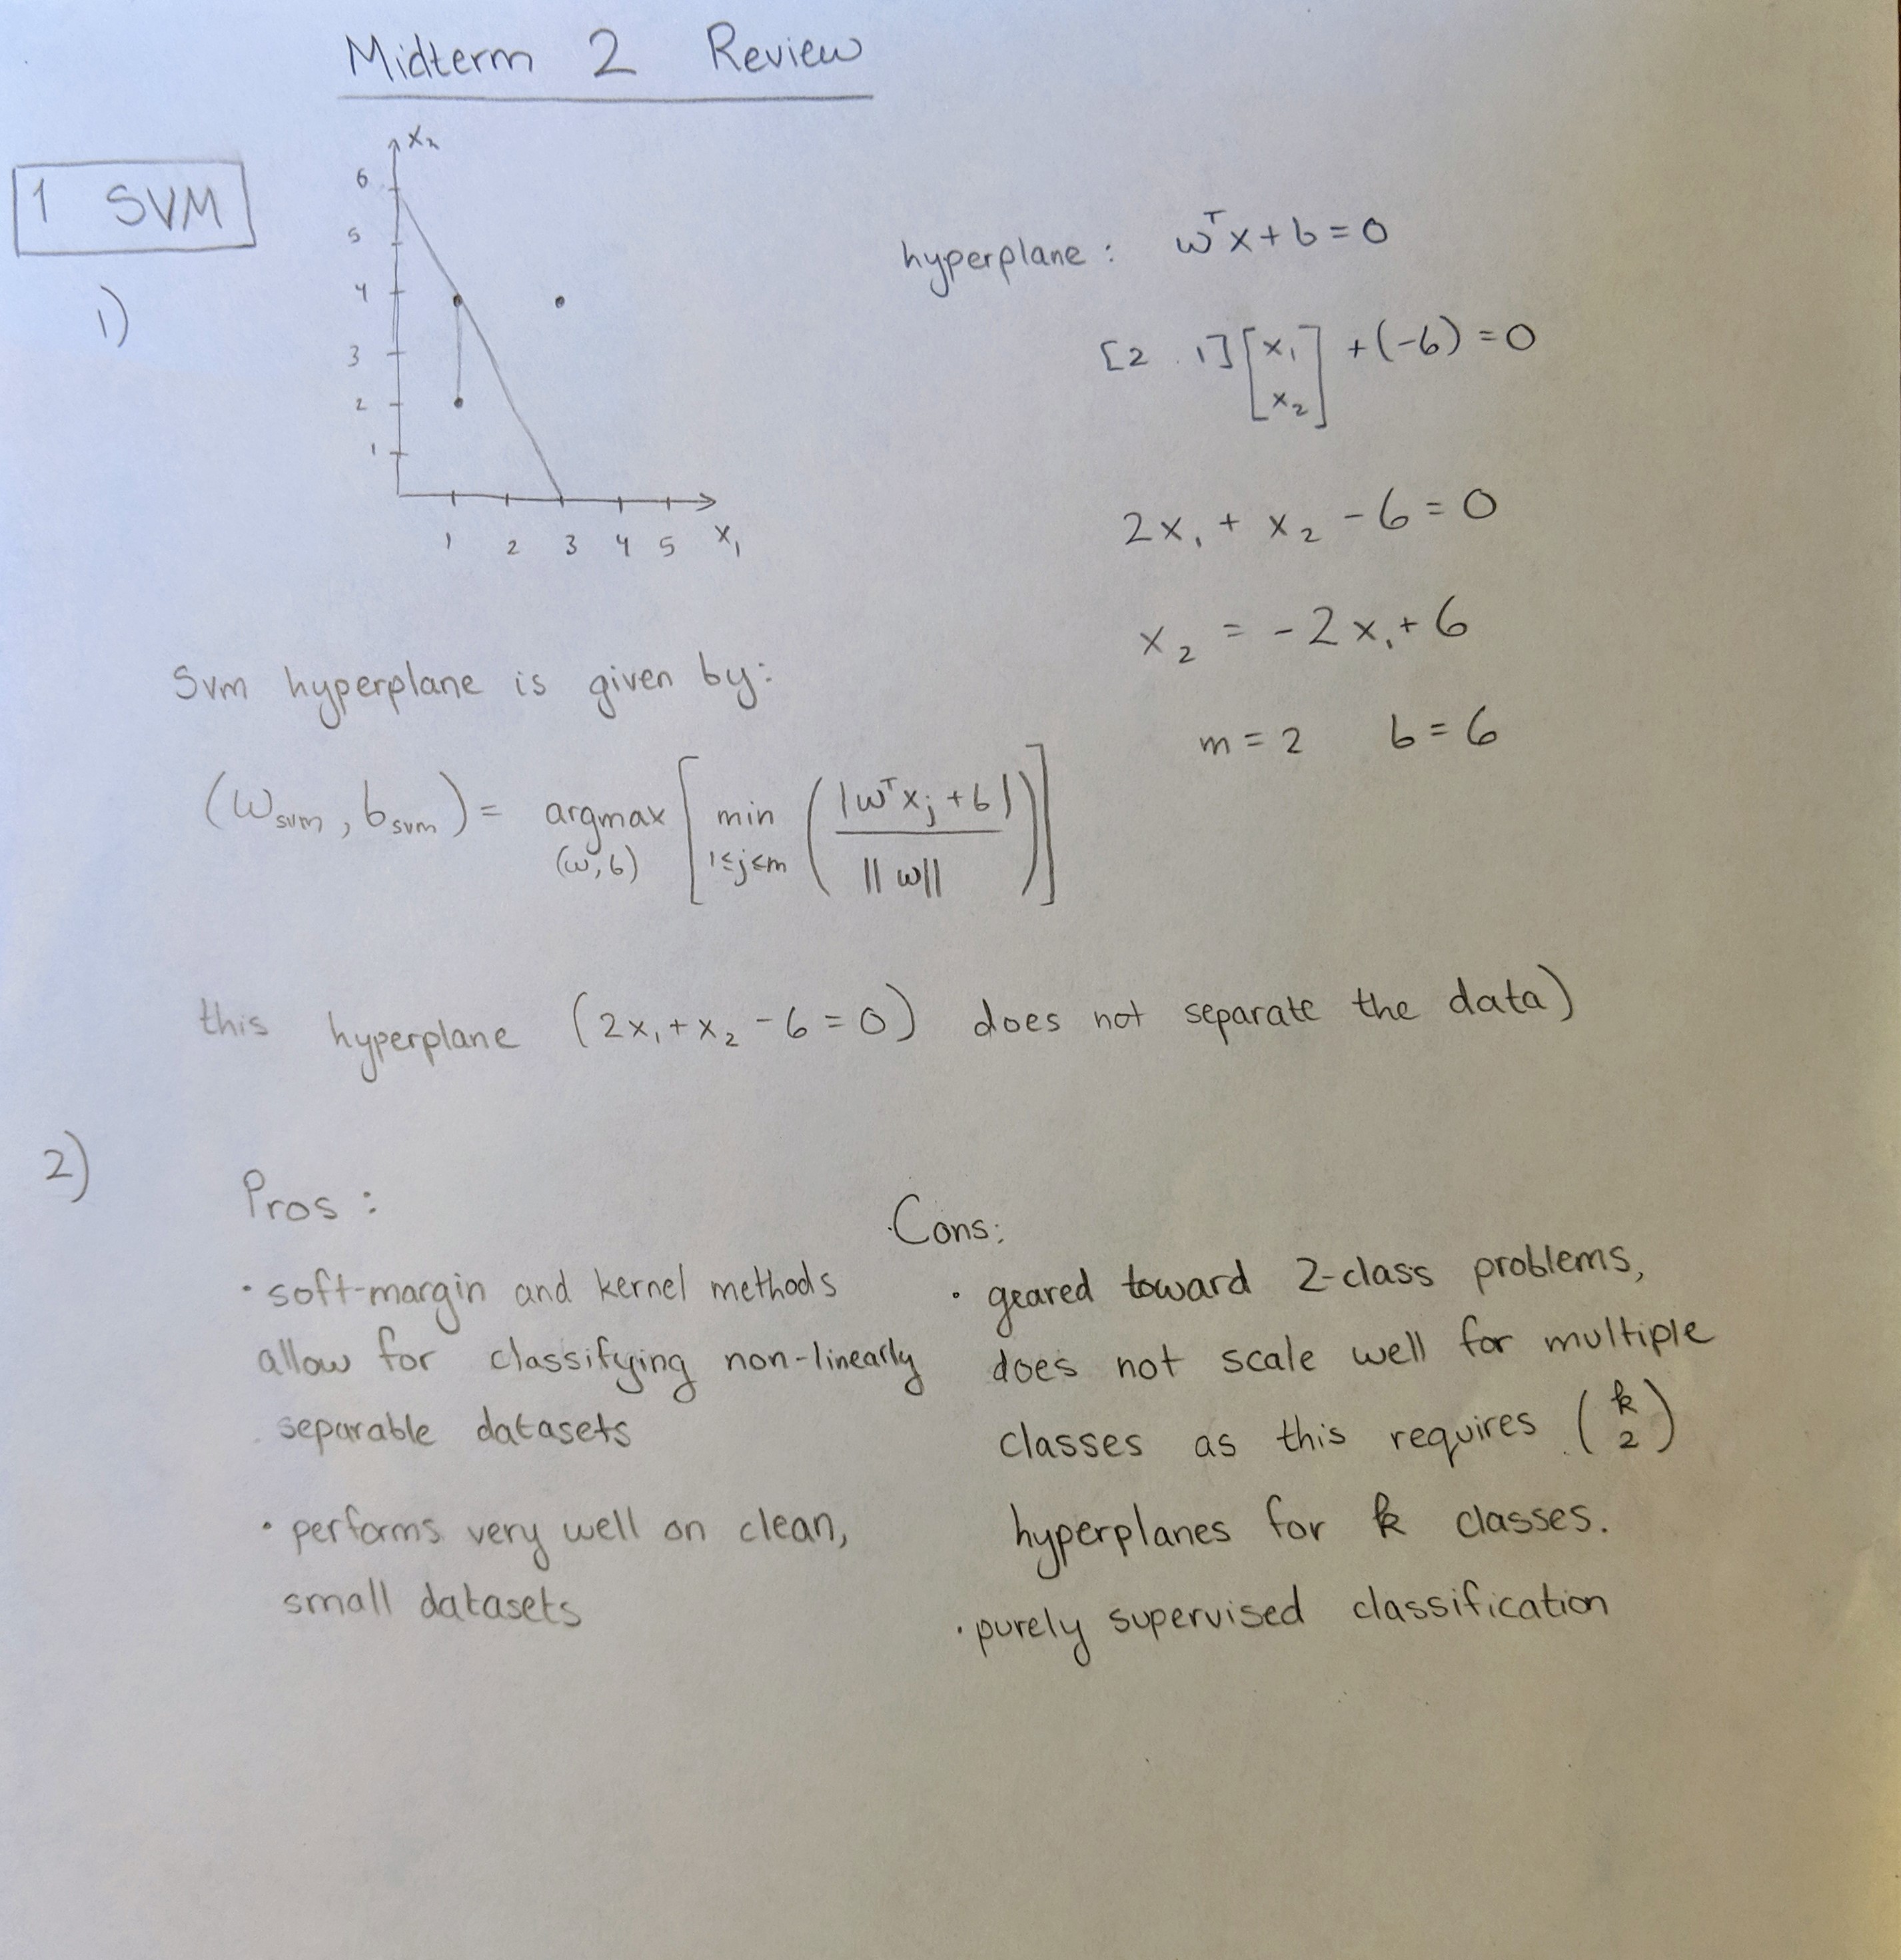 Midterm 2 Review
1 SVM
1)
x₂
6
5
4
3
2
1
1 2 3 4 5 x₁
hyperplane: wᵀx + b = 0
[2 1][x₁ x₂] + (-6) = 0
2x₁ + x₂ - 6 = 0
x₂ = -2x₁ + 6
m = 2 b = 6
Svm hyperplane is given by:
(w_svm, b_svm) = argmax_(w,b) [ min_(1≤j≤m) ( |wᵀx_j + b| / ||w|| ) ]
this hyperplane (2x₁ + x₂ - 6 = 0) does not separate the data)
2)
Pros:
· soft-margin and kernel methods
allow for classifying non-linearly
separable datasets
· performs very well on clean,
small datasets
Cons:
· geared toward 2-class problems,
does not scale well for multiple
classes as this requires (k 2)
hyperplanes for k classes.
· purely supervised classification